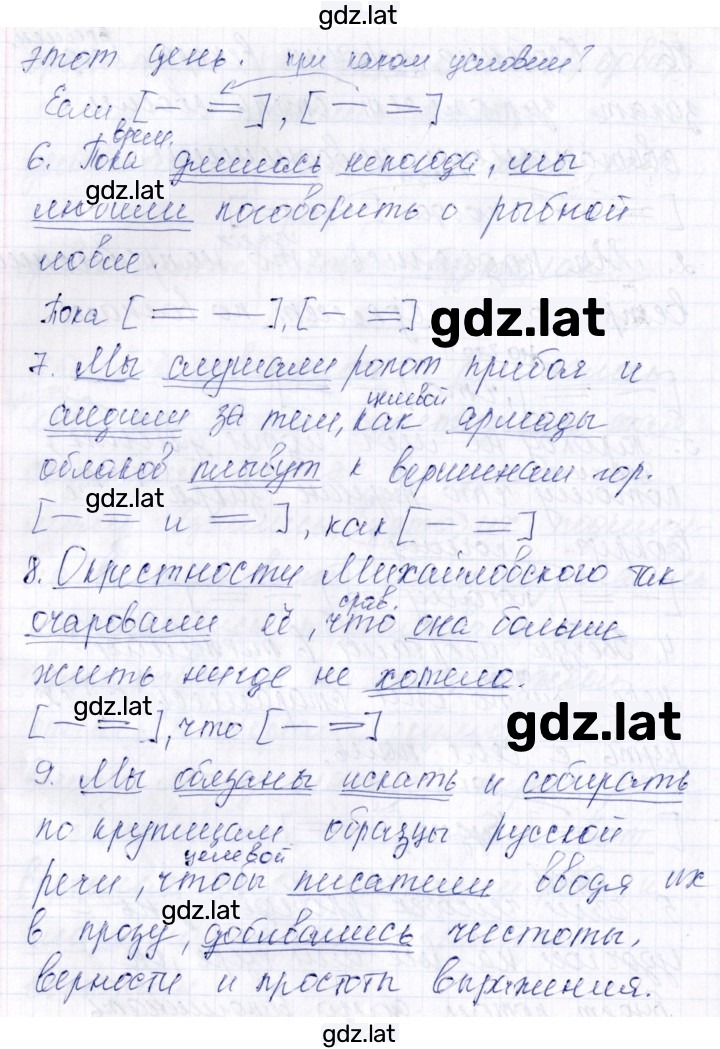 gdz.lat
этот день. при каком условии?
Если [— =], [— =]
врем.
6. Пока длилась непогода, мы
gdz.lat
любили поговорить о рыбной
ловле.
Пока [= —], [— =]
gdz.lat
7. Мы слушали ропот прибоя и
целевой
следили за тем, как армады
облаков плывут к вершинам гор.
gdz.lat
[— = и =], как [— =]
8. Окрестности Михайловского так
срав.
очаровали её, что она больше
жить нигде не хотела.
gdz.lat
[— =], что [— =]
gdz.lat
9. Мы обязаны искать и собирать
по крупицам образцы русской
целевой
речи, чтобы писатели вводя их
gdz.lat
в прозу, добивались чистоты,
верности и простоты выражения.
gdz.lat